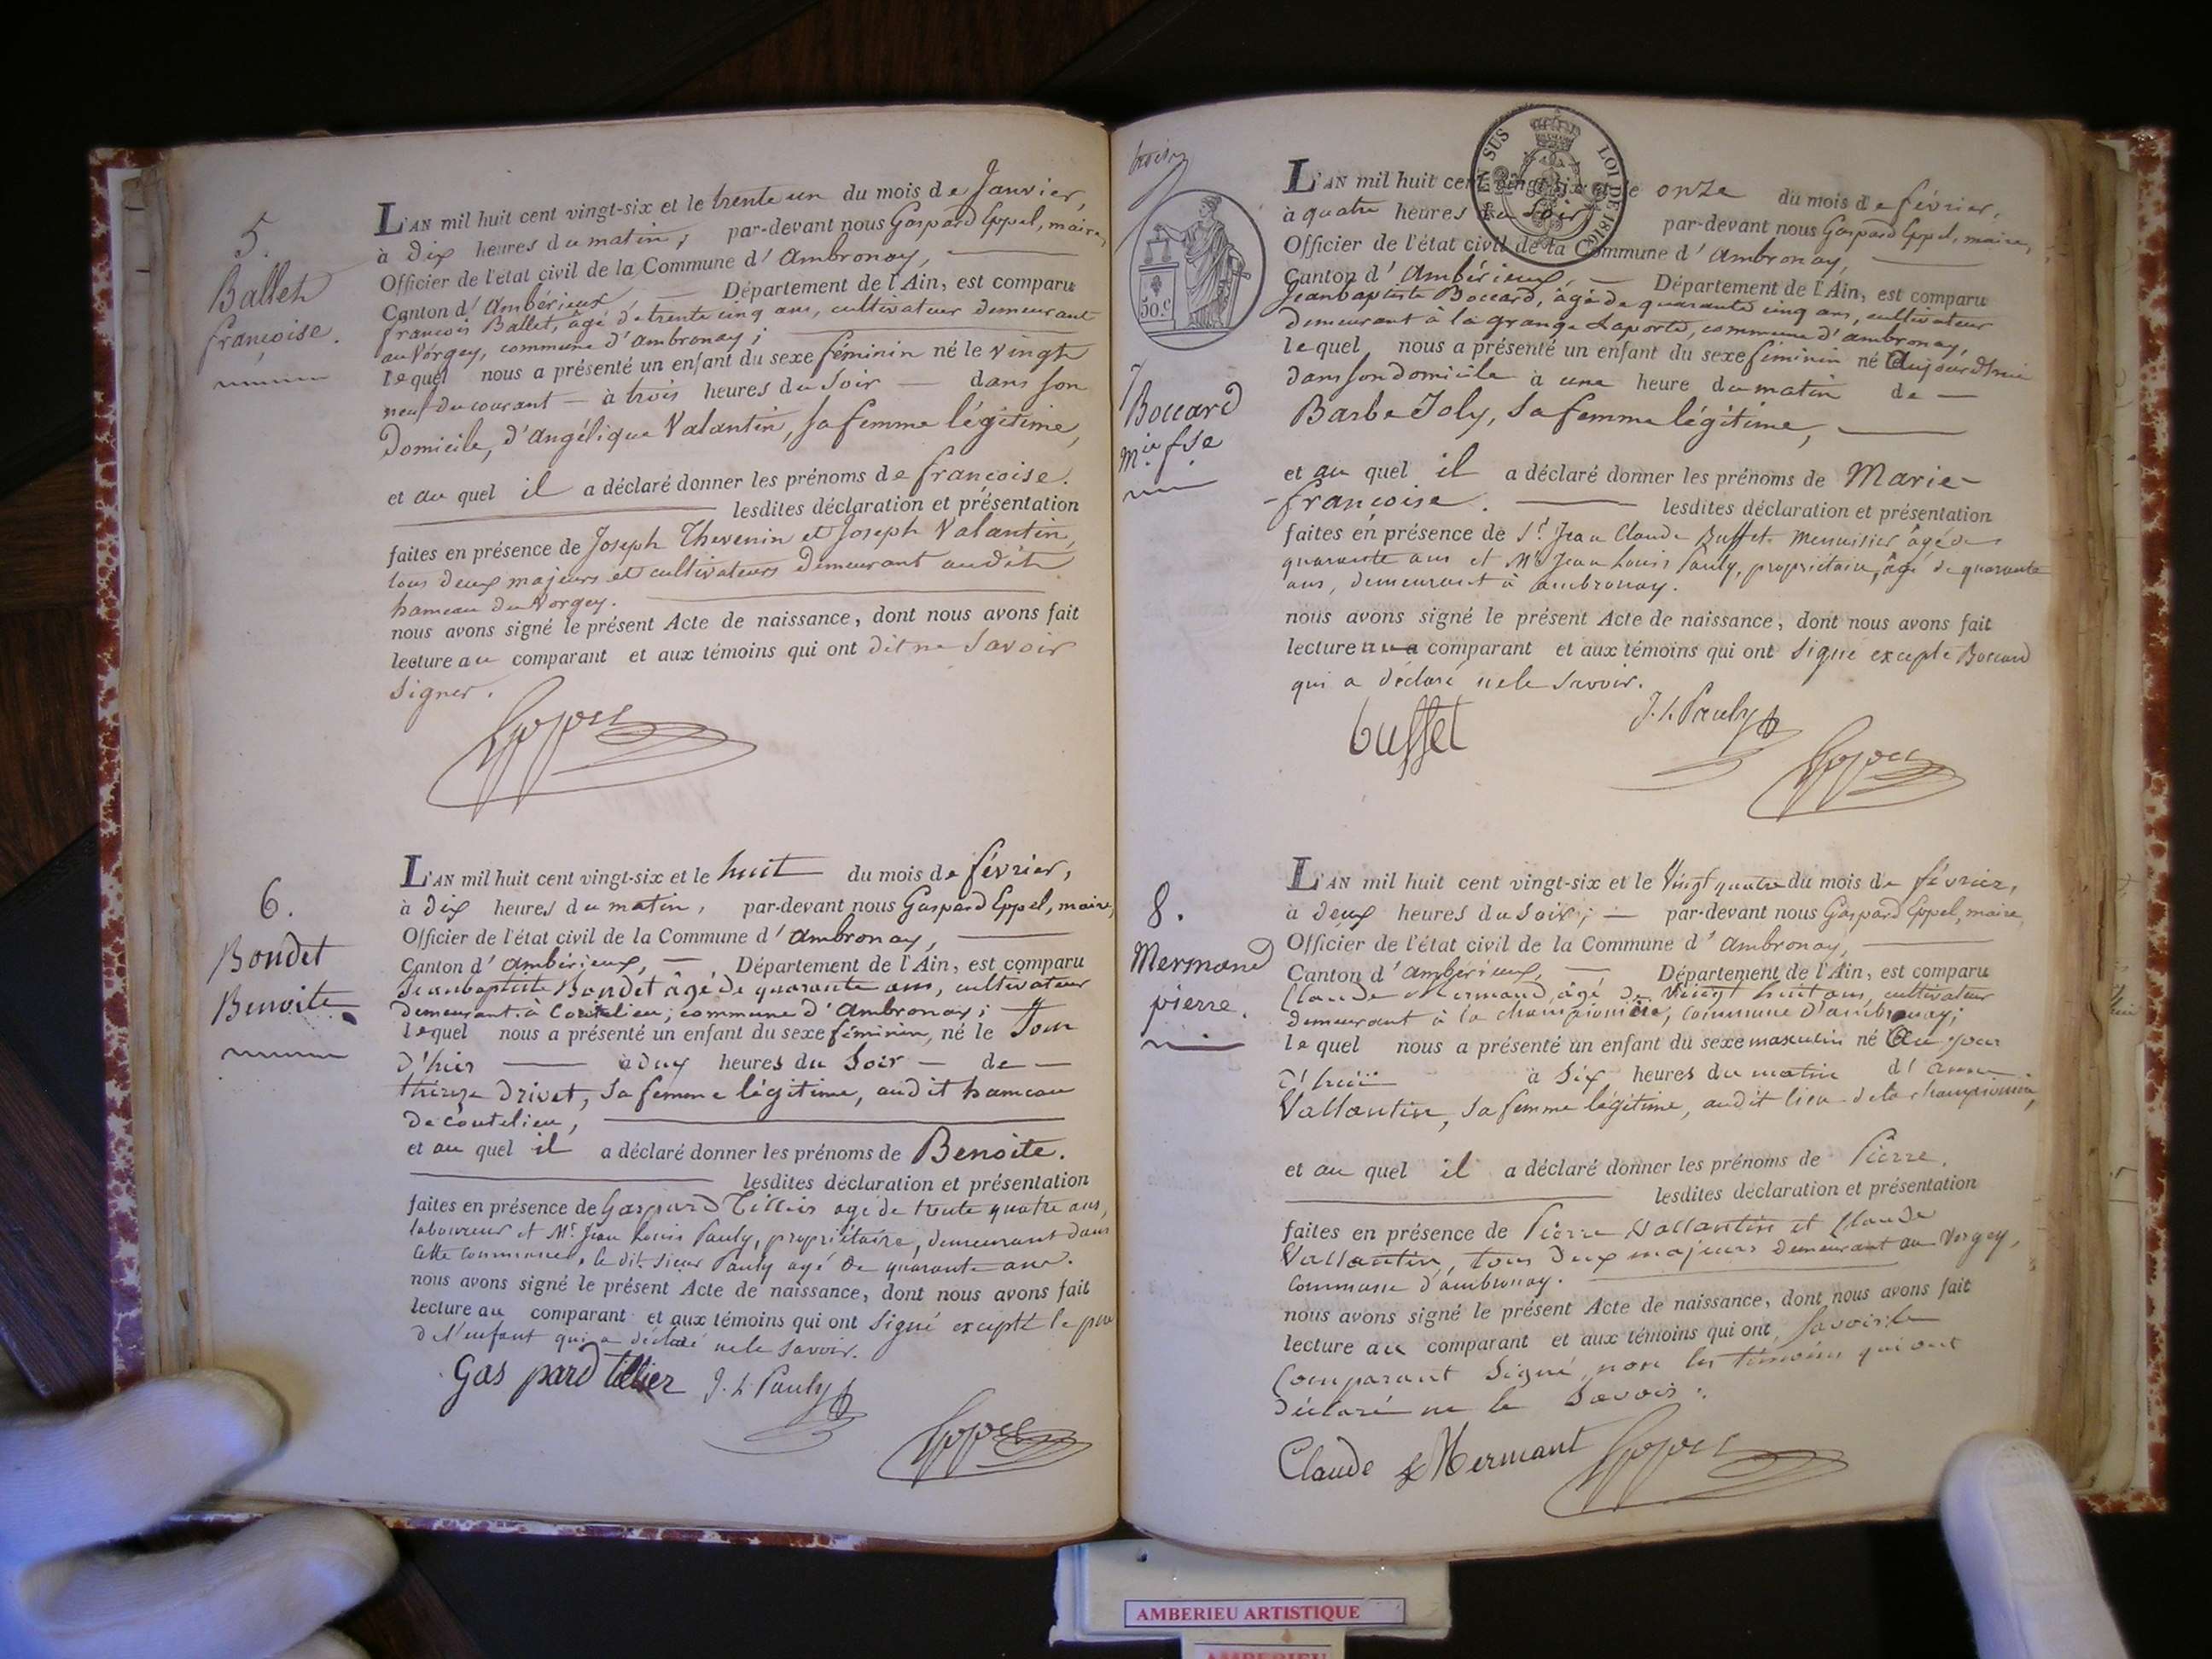 5.
Ballet
françoise.
L'AN mil huit cent vingt-six et le trente un du mois de Janvier,
à dix heures du matin, par-devant nous Gaspard Eppel, maire,
Officier de l'état civil de la Commune d'Ambronay,
Canton d'Ambérieux, Département de l'Ain, est comparu
françois Ballet, âgé de trente cinq ans, cultivateur demeurant
au Vorgey, commune d'ambronay;
lequel nous a présenté un enfant du sexe féminin né le vingt
neuf du courant — à trois heures du Soir — dans son
Domicile, d'Angélique Valantin, sa femme légitime,
et au quel il a déclaré donner les prénoms de françoise.
lesdites déclaration et présentation
faites en présence de Joseph Thevenin et Joseph Valantin,
tous deux majeurs et cultivateurs demeurant audit
hameau du Vorgey.
nous avons signé le présent Acte de naissance, dont nous avons fait
lecture au comparant et aux témoins qui ont dit ne Savoir
Signer.
6.
Bondet
Benoite
L'AN mil huit cent vingt-six et le huit du mois de février,
à dix heures du matin, par-devant nous Gaspard Eppel, maire,
Officier de l'état civil de la Commune d'Ambronay,
Canton d'Ambérieux, — Département de l'Ain, est comparu
Jeanbaptiste Bondet âgé de quarante ans, cultivateur
demeurant à Coutelieu, commune d'Ambronay;
lequel nous a présenté un enfant du sexe féminin, né le Jour
d'hier — à deux heures du Soir — de —
thérèze Drivet, sa femme légitime, audit hameau
de coutelieu,
et au quel il a déclaré donner les prénoms de Benoite.
lesdites déclaration et présentation
faites en présence de Gaspard Tillier agé de trente quatre ans,
laboureur et Mr. Jean Louis Pauly, propriétaire, demeurant dans
cette commune, le dit Sieur Pauly agé de quarante ans.
nous avons signé le présent Acte de naissance, dont nous avons fait
lecture au comparant et aux témoins qui ont Signé excepté le père
de l'enfant qui a déclaré ne le Savoir.
Gas pard tillier J. L. Pauly
SUS LOI DE 1816
50.c
7
Boccard
Mie fse
L'AN mil huit cent vingt-six et le onze du mois de février,
à quatre heures du Soir par-devant nous Gaspard Eppel, maire,
Officier de l'état civil de la Commune d'Ambronay,
Canton d'Ambérieux, — Département de l'Ain, est comparu
Jeanbaptiste Boccard, âgé de quarante cinq ans, cultivateur
Demeurant à la grange Laporte, commune d'ambronay,
lequel nous a présenté un enfant du sexe féminin né aujourd'hui
dans son domicile à une heure du matin de —
Barbe Joly, sa femme légitime,
et au quel il a déclaré donner les prénoms de Marie-
françoise. lesdites déclaration et présentation
faites en présence de Sr. Jean Claude Buffet Menuisier âgé de
quarante ans et Mr. Jean Louis Pauly, propriétaire, âgé de quarante
ans, demeurant à ambronay.
nous avons signé le présent Acte de naissance, dont nous avons fait
lecture au comparant et aux témoins qui ont Signé excepté Boccard
qui a déclaré ne le Savoir.
buffet J. L. Pauly
8.
Mermand
pierre.
L'AN mil huit cent vingt-six et le Vingt quatre du mois de février,
à deux heures du Soir; — par-devant nous Gaspard Eppel, maire,
Officier de l'état civil de la Commune d'Ambronay,
Canton d'Ambérieux, — Département de l'Ain, est comparu
Claude Mermand, âgé de Vingt huit ans, cultivateur
demeurant à la championière, commune d'ambronay;
lequel nous a présenté un enfant du sexe masculin né Ce jour
d'hui à Six heures du matin d'anne
Vallantin, Sa femme légitime, audit lieu de la championière,
et au quel il a déclaré donner les prénoms de Pierre.
lesdites déclaration et présentation
faites en présence de Pierre Vallantin et Claude
Vallantin, tous deux majeurs demeurant au Vorgey,
Commune d'ambronay.
nous avons signé le présent Acte de naissance, dont nous avons fait
lecture au comparant et aux témoins qui ont Savoir le
Comparant Signé, non les témoins qui ont
Déclaré ne le Savoir.
Claude Mermant
AMBERIEU ARTISTIQUE
AMBERIEU